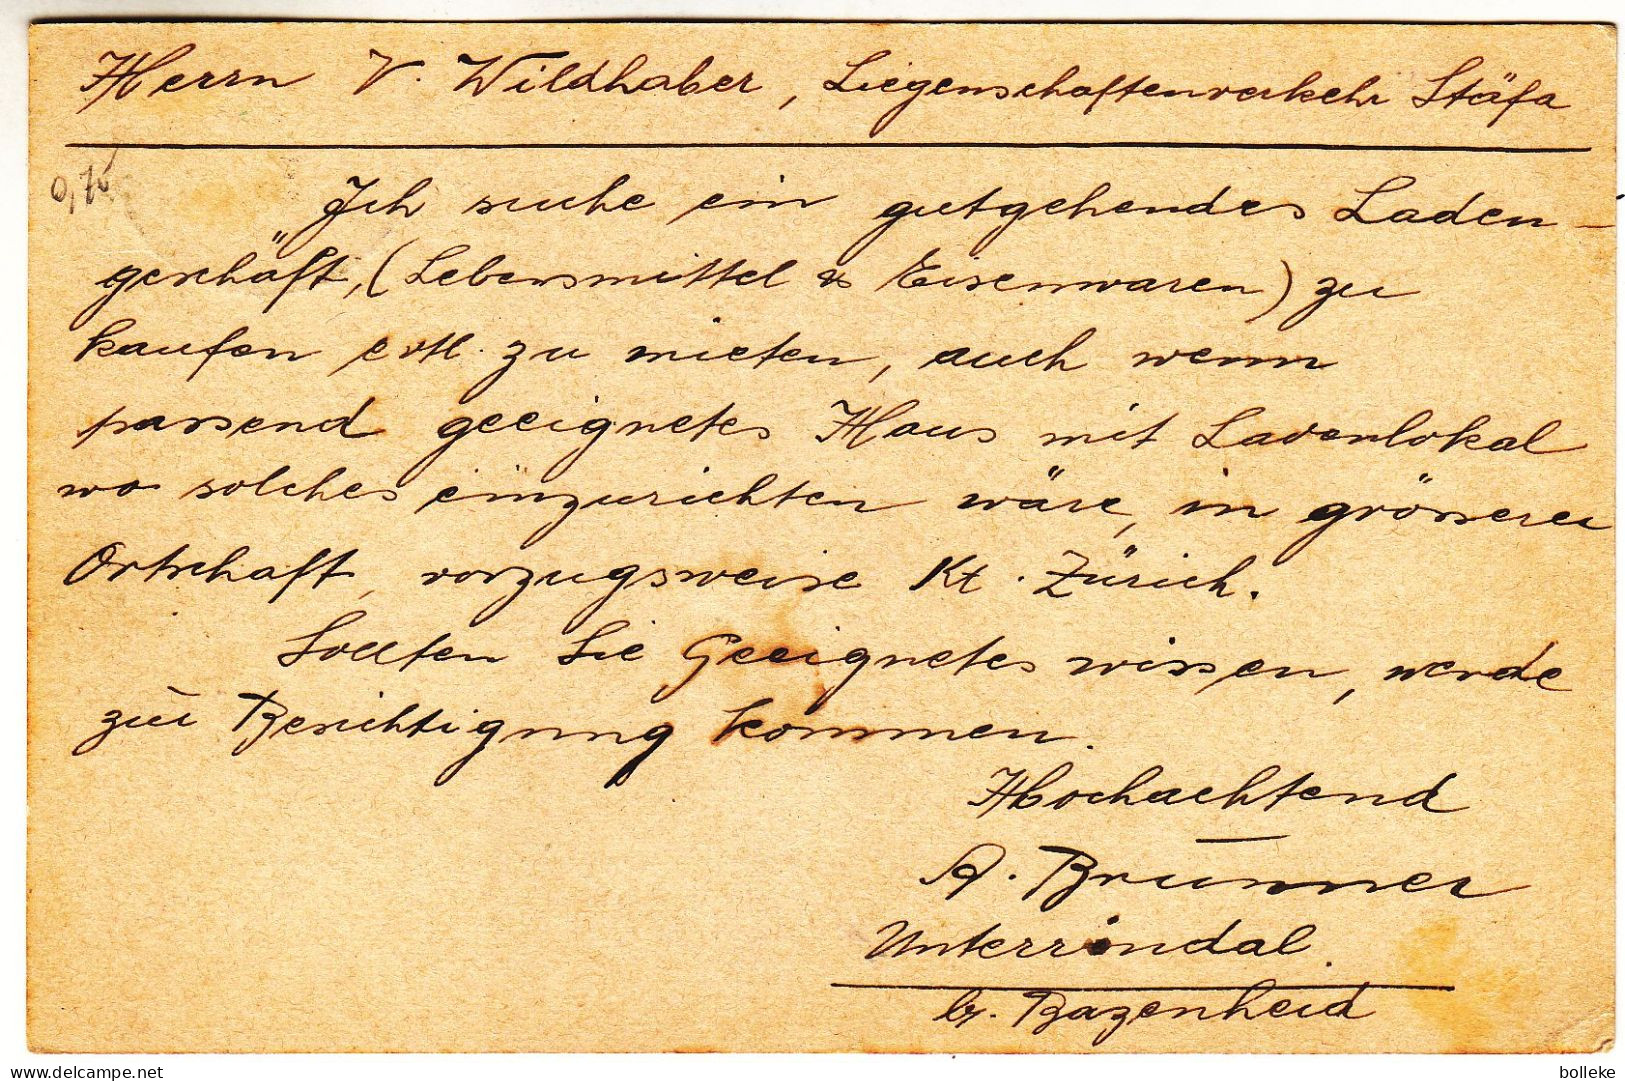 Herrn V. Wildhaber, Liegenschaftenverkehr Stäfa
Ich suche ein gutgehendes Laden-
geschäft, (Lebensmittel & Eisenwaren) zu
kaufen evtl. zu mieten, auch wenn
passend geeignetes Haus mit Ladenlokal
wo solches einzurichten wäre, in grösserer
Ortschaft, vorzugsweise Kt. Zürich.
Sollten Sie Geeignetes wissen, werde
zur Besichtigung kommen.
Hochachtend
A. Brunner
Unterrindal.
b. Bazenheid
bolleke